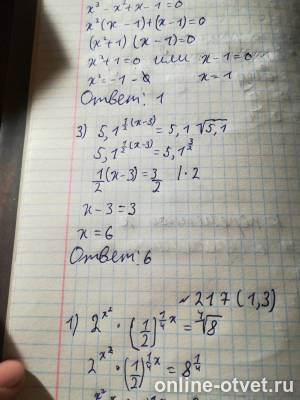 x³ - x² + x - 1 = 0
x²(x - 1) + (x - 1) = 0
(x² + 1) (x - 1) = 0
x² + 1 = 0 или x - 1 = 0
x² = -1 - ∅ x = 1
Ответ: 1
3) 5,1^(½(x-3)) = 5,1 √5,1
5,1^(½(x-3)) = 5,1^(3/2)
½(x-3) = 3/2 | · 2
x - 3 = 3
x = 6
Ответ: 6
№ 217 (1,3)
1) 2^(x²) · (½)^(¼x) = ⁴√8
2^(x²) · (½)^(¼x) = 8^(¼)
online-otvet.ru